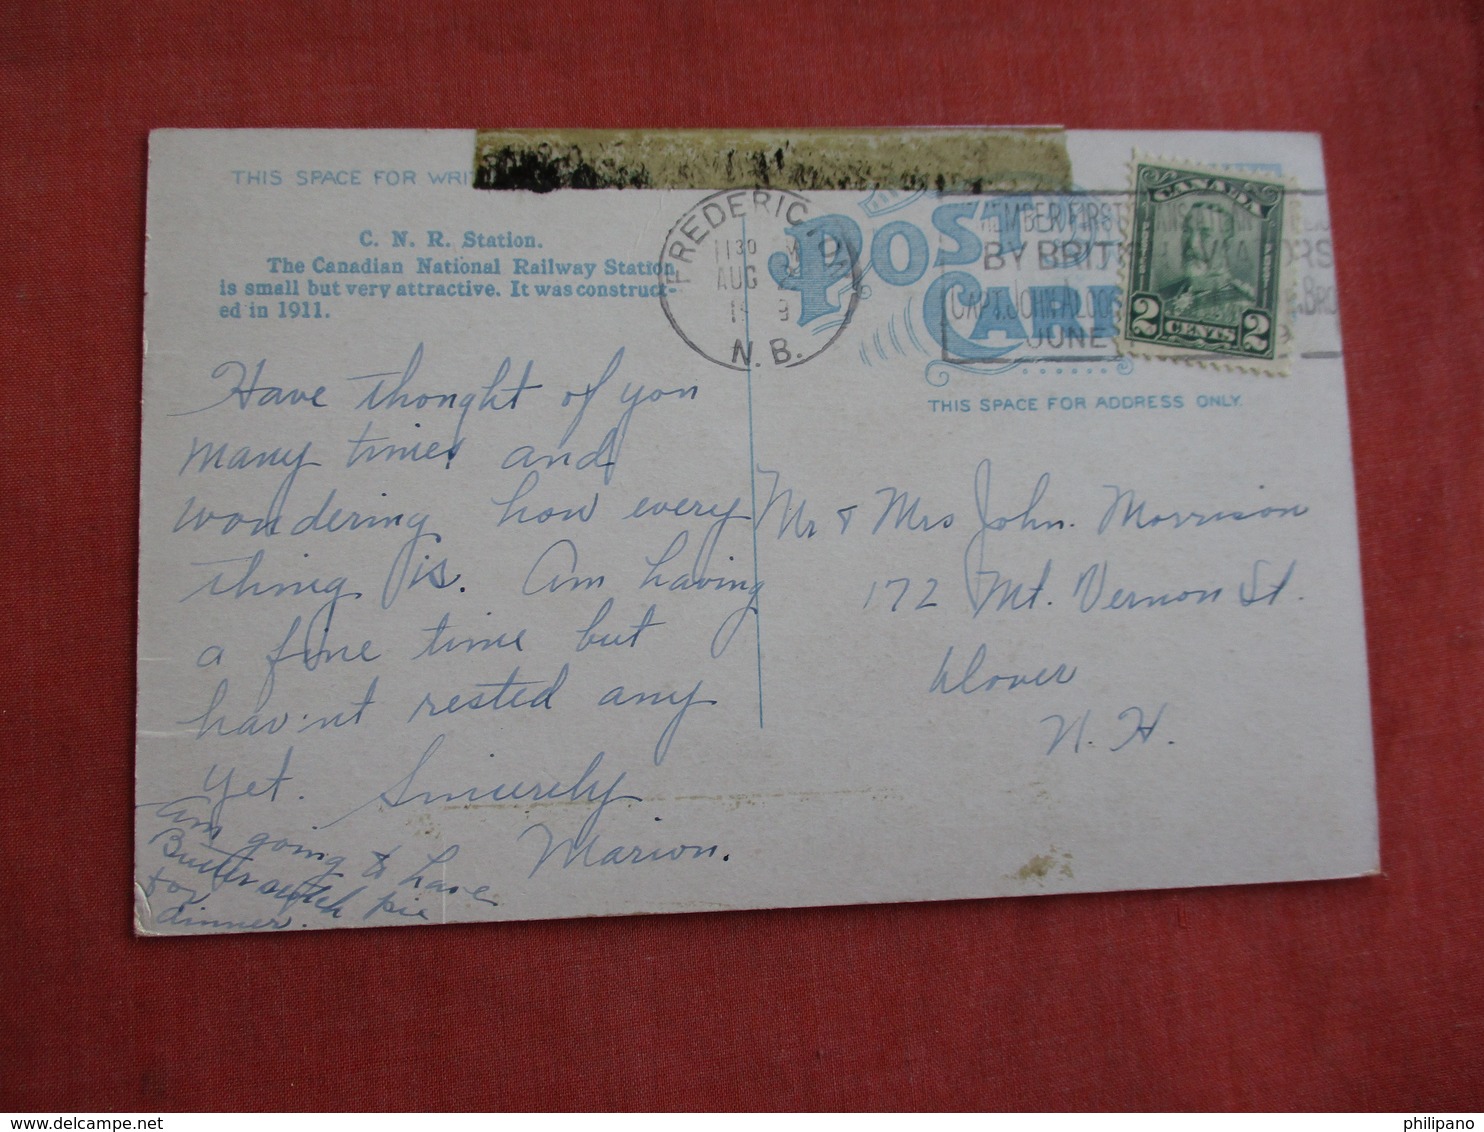 THIS SPACE FOR WRIT
C. N. R. Station.
The Canadian National Railway Station
is small but very attractive. It was construct-
ed in 1911.
FREDERICTON
1130
AUG
N. B.
POST
CARD
BY BRIT
CAPT. JOHN ALCOC
JUNE
CANADA
2 CENTS 2
THIS SPACE FOR ADDRESS ONLY.
Have thought of you
many times and
wondering how every
thing is. Am having
a fine time but
hav'nt rested any
yet. Sincerely
Marion.
Am going to have
Butter scotch pie
for
dinner.
Mr & Mrs John. Morrison
172 Mt. Vernon St.
Dover
N. H.
philipano